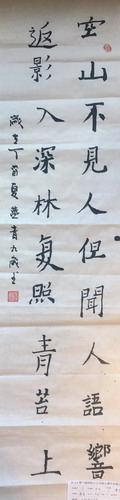 空山不見人但聞人語響
返影入深林復照青苔上
歲在丁酉夏